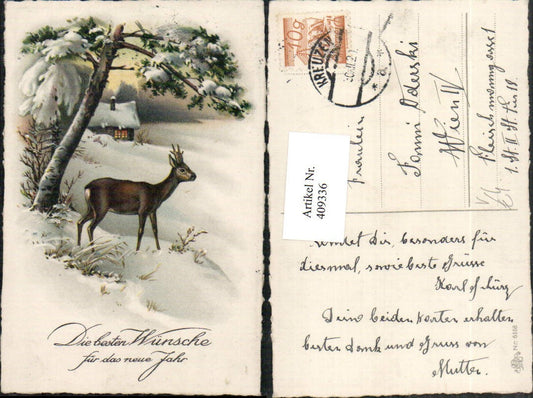 Die besten Wünsche
für das neue Jahr
10g
KREUZEN
Artikel Nr.
409336
Fräulein
Fanni
Wien V
1. St. II. St. Tür 18
Dir, besonders für
diesmal, sowie beste Grüsse
Karl
Deine beiden Karten erhalten
besten dank und Gruss von
Mutter.
Nr. 6166